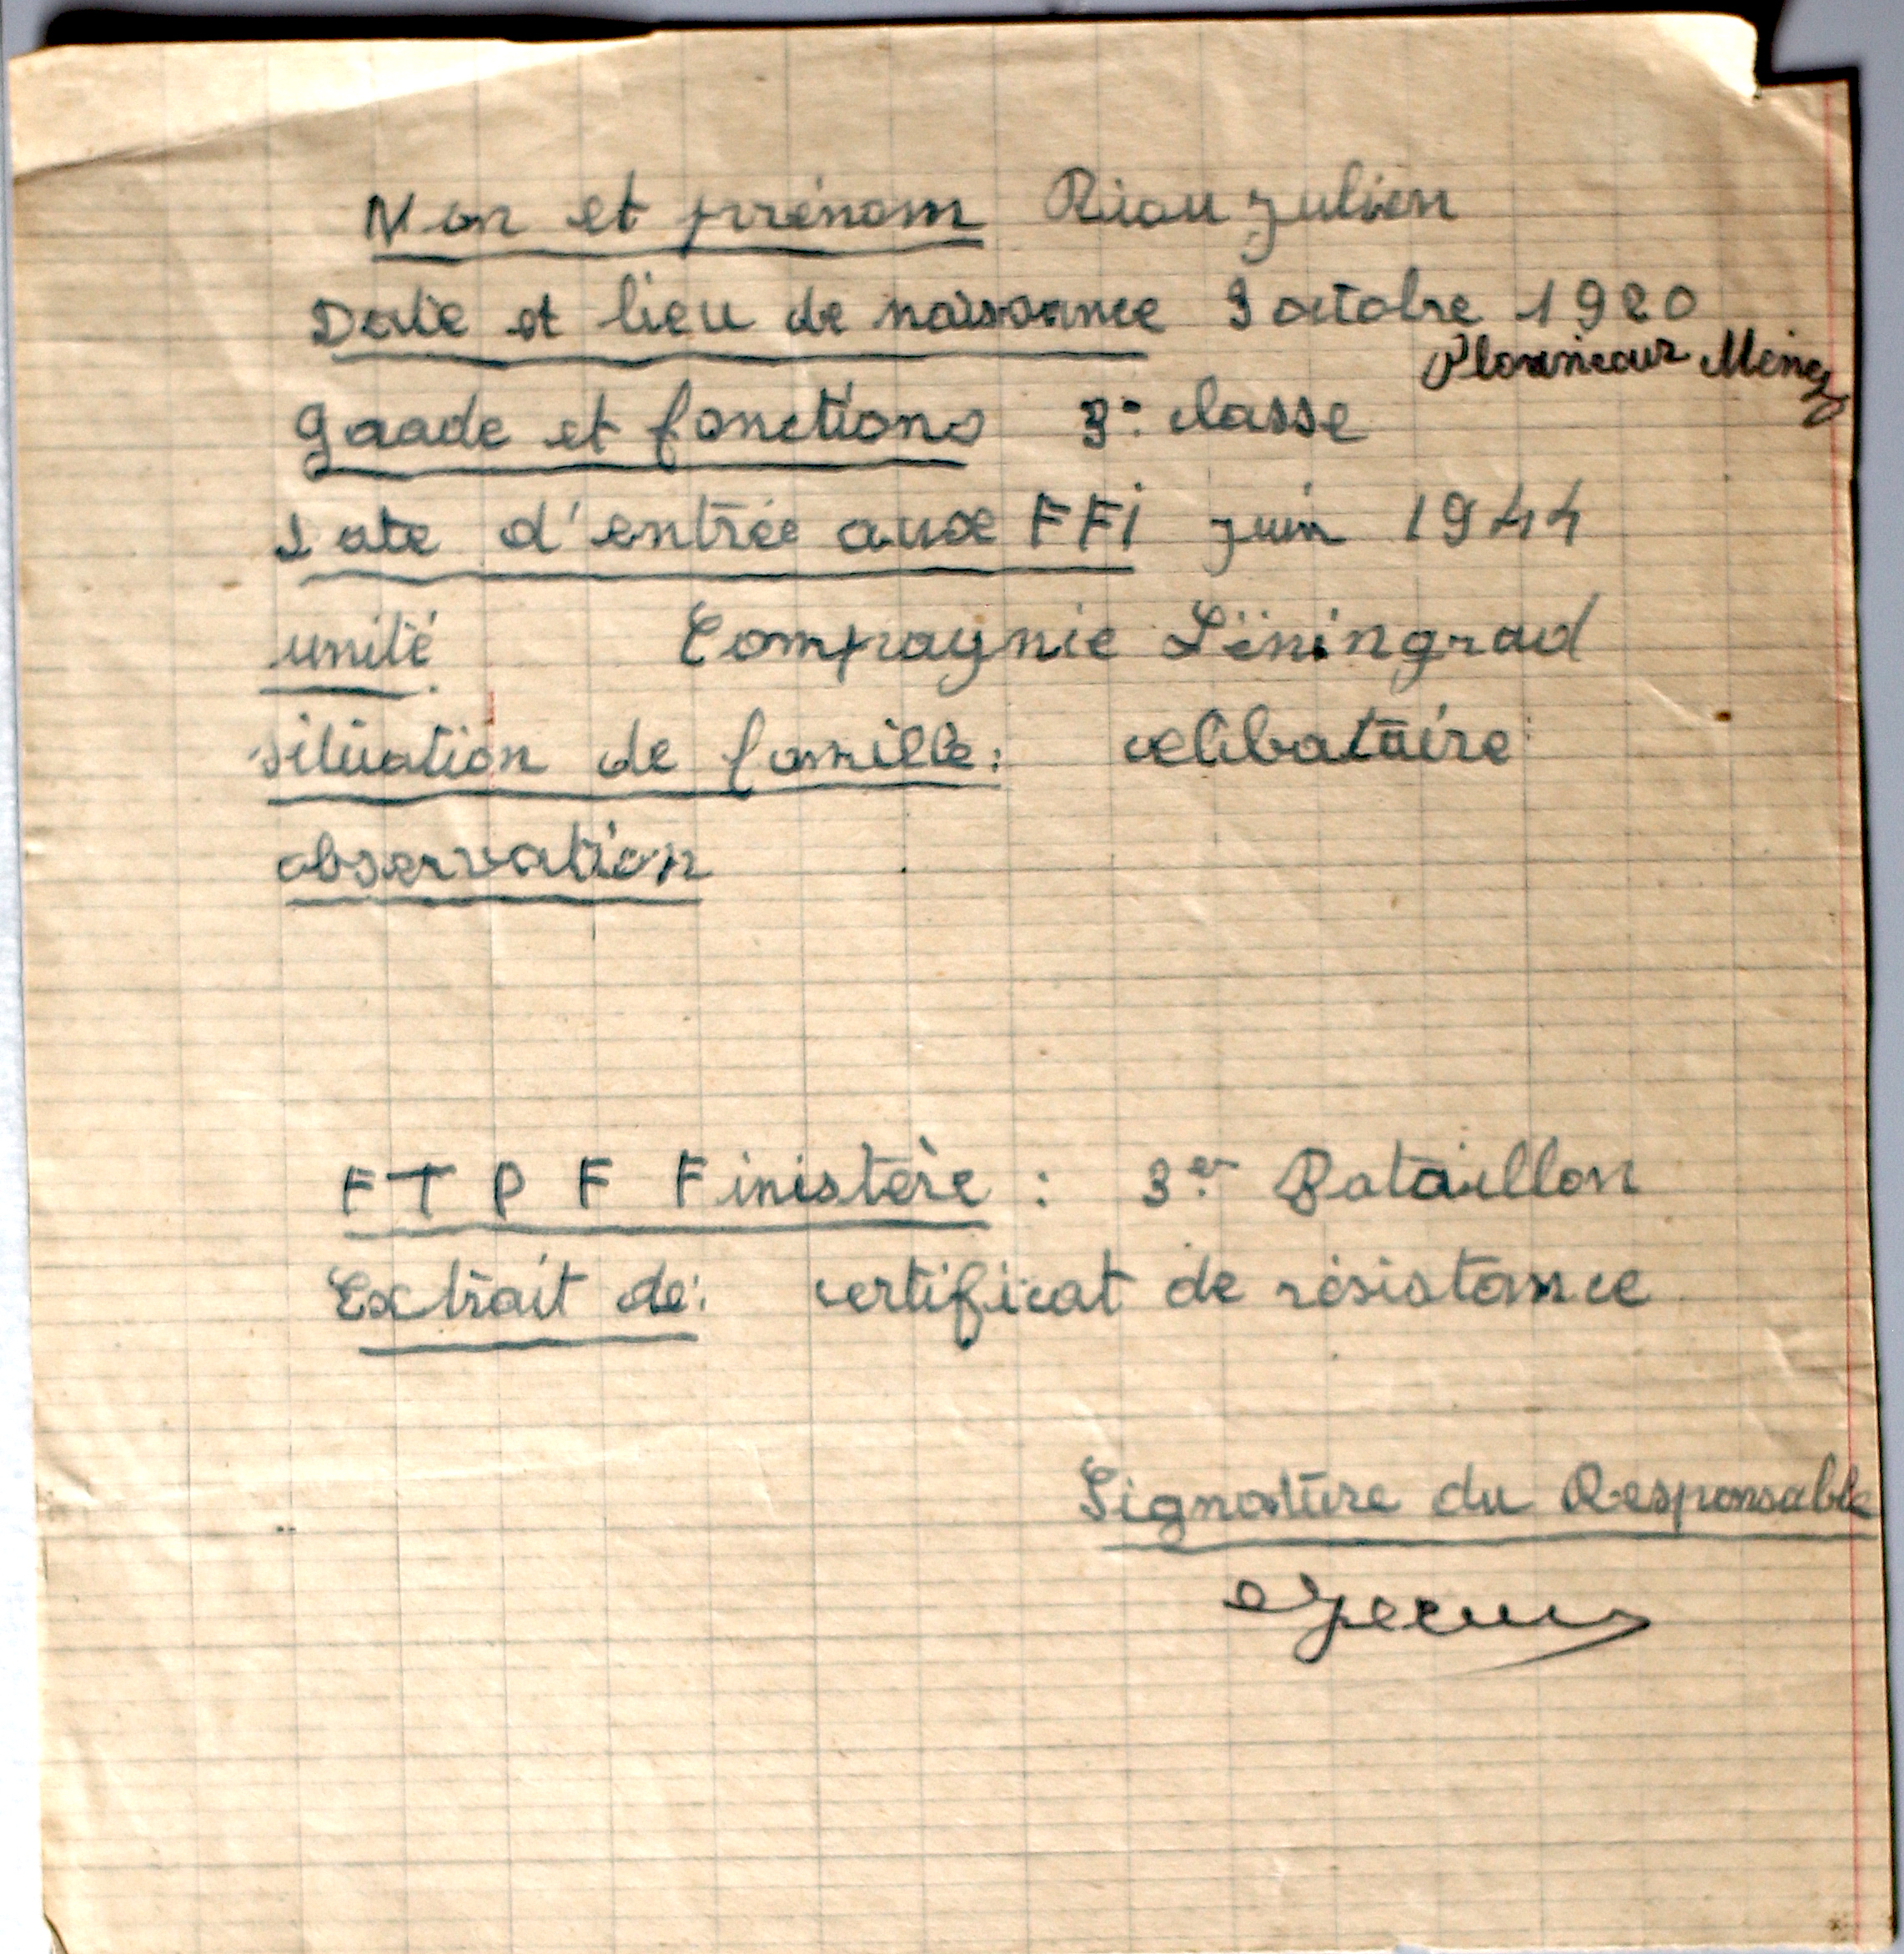 Non et prénom Riou Julien
Date et lieu de naissance 9 octobre 1920
Plounéour Menez
Grade et fonctions 2e classe
Date d'entrée aux FFi juin 1944
unité Compagnie Léningrad
situation de famille: celibataire
observation
FTPF Finistère : 3er Bataillon
Extrait de: certificat de résistance
Signature du Responsable